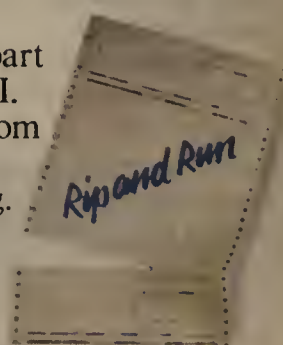 part
I.
om
g.
Rip and Run